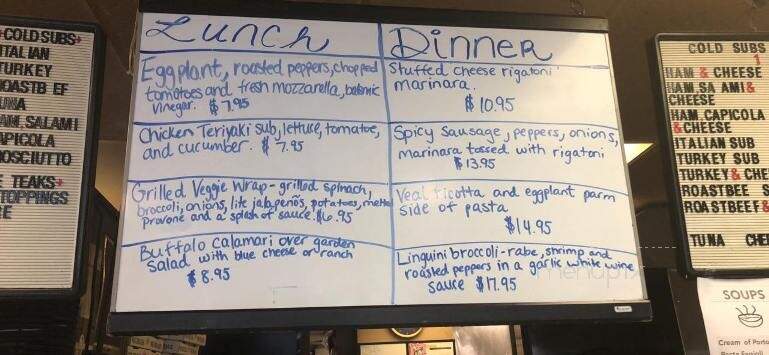 COLD SUBS
ITALIAN
TURKEY
ROAST BEEF
TUNA
HAM, SALAMI
CAPICOLA
PROSCIUTTO
TEAKS
TOPPINGS
Lunch
Eggplant, roasted peppers, chopped
tomatoes and fresh mozzarella, balsmic
vinegar. $7.95
Chicken Teriyaki sub, lettuce, tomatoe,
and cucumber. $7.95
Grilled Veggie Wrap - grilled spinach,
broccoli, onions, lite jalapeños, potatoes, melted
provone and a splash of sauce. $6.95
Buffalo calamari over garden
salad with blue cheese or ranch
$8.95
Dinner
Stuffed cheese rigatoni
marinara.
$10.95
Spicy Sausage, peppers, onions,
marinara tossed with rigatoni
$13.95
Veal ricotta and eggplant parm
side of pasta
$14.95
Linguini broccoli-rabe, shrimp and
roasted peppers in a garlic white wine
sauce $17.95
COLD SUBS
1
HAM & CHEESE
HAM, SALAMI &
CHEESE
HAM, CAPICOLA
& CHEESE
ITALIAN SUB
TURKEY SUB
TURKEY & CHE
ROASTBEE S
ROASTBEEF &
TUNA CHE
SOUPS
Cream of